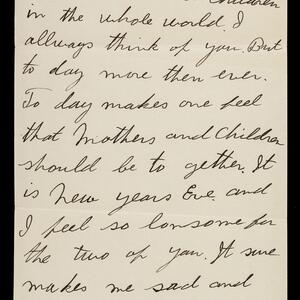 Children
in the whole world. I
allways think of you. But
to day more then ever.
To day makes one feel
that Mothers and Children
should be to gether. It
is New years Eve. and
I feel so lonsome for
the two of you. It sure
makes me sad and